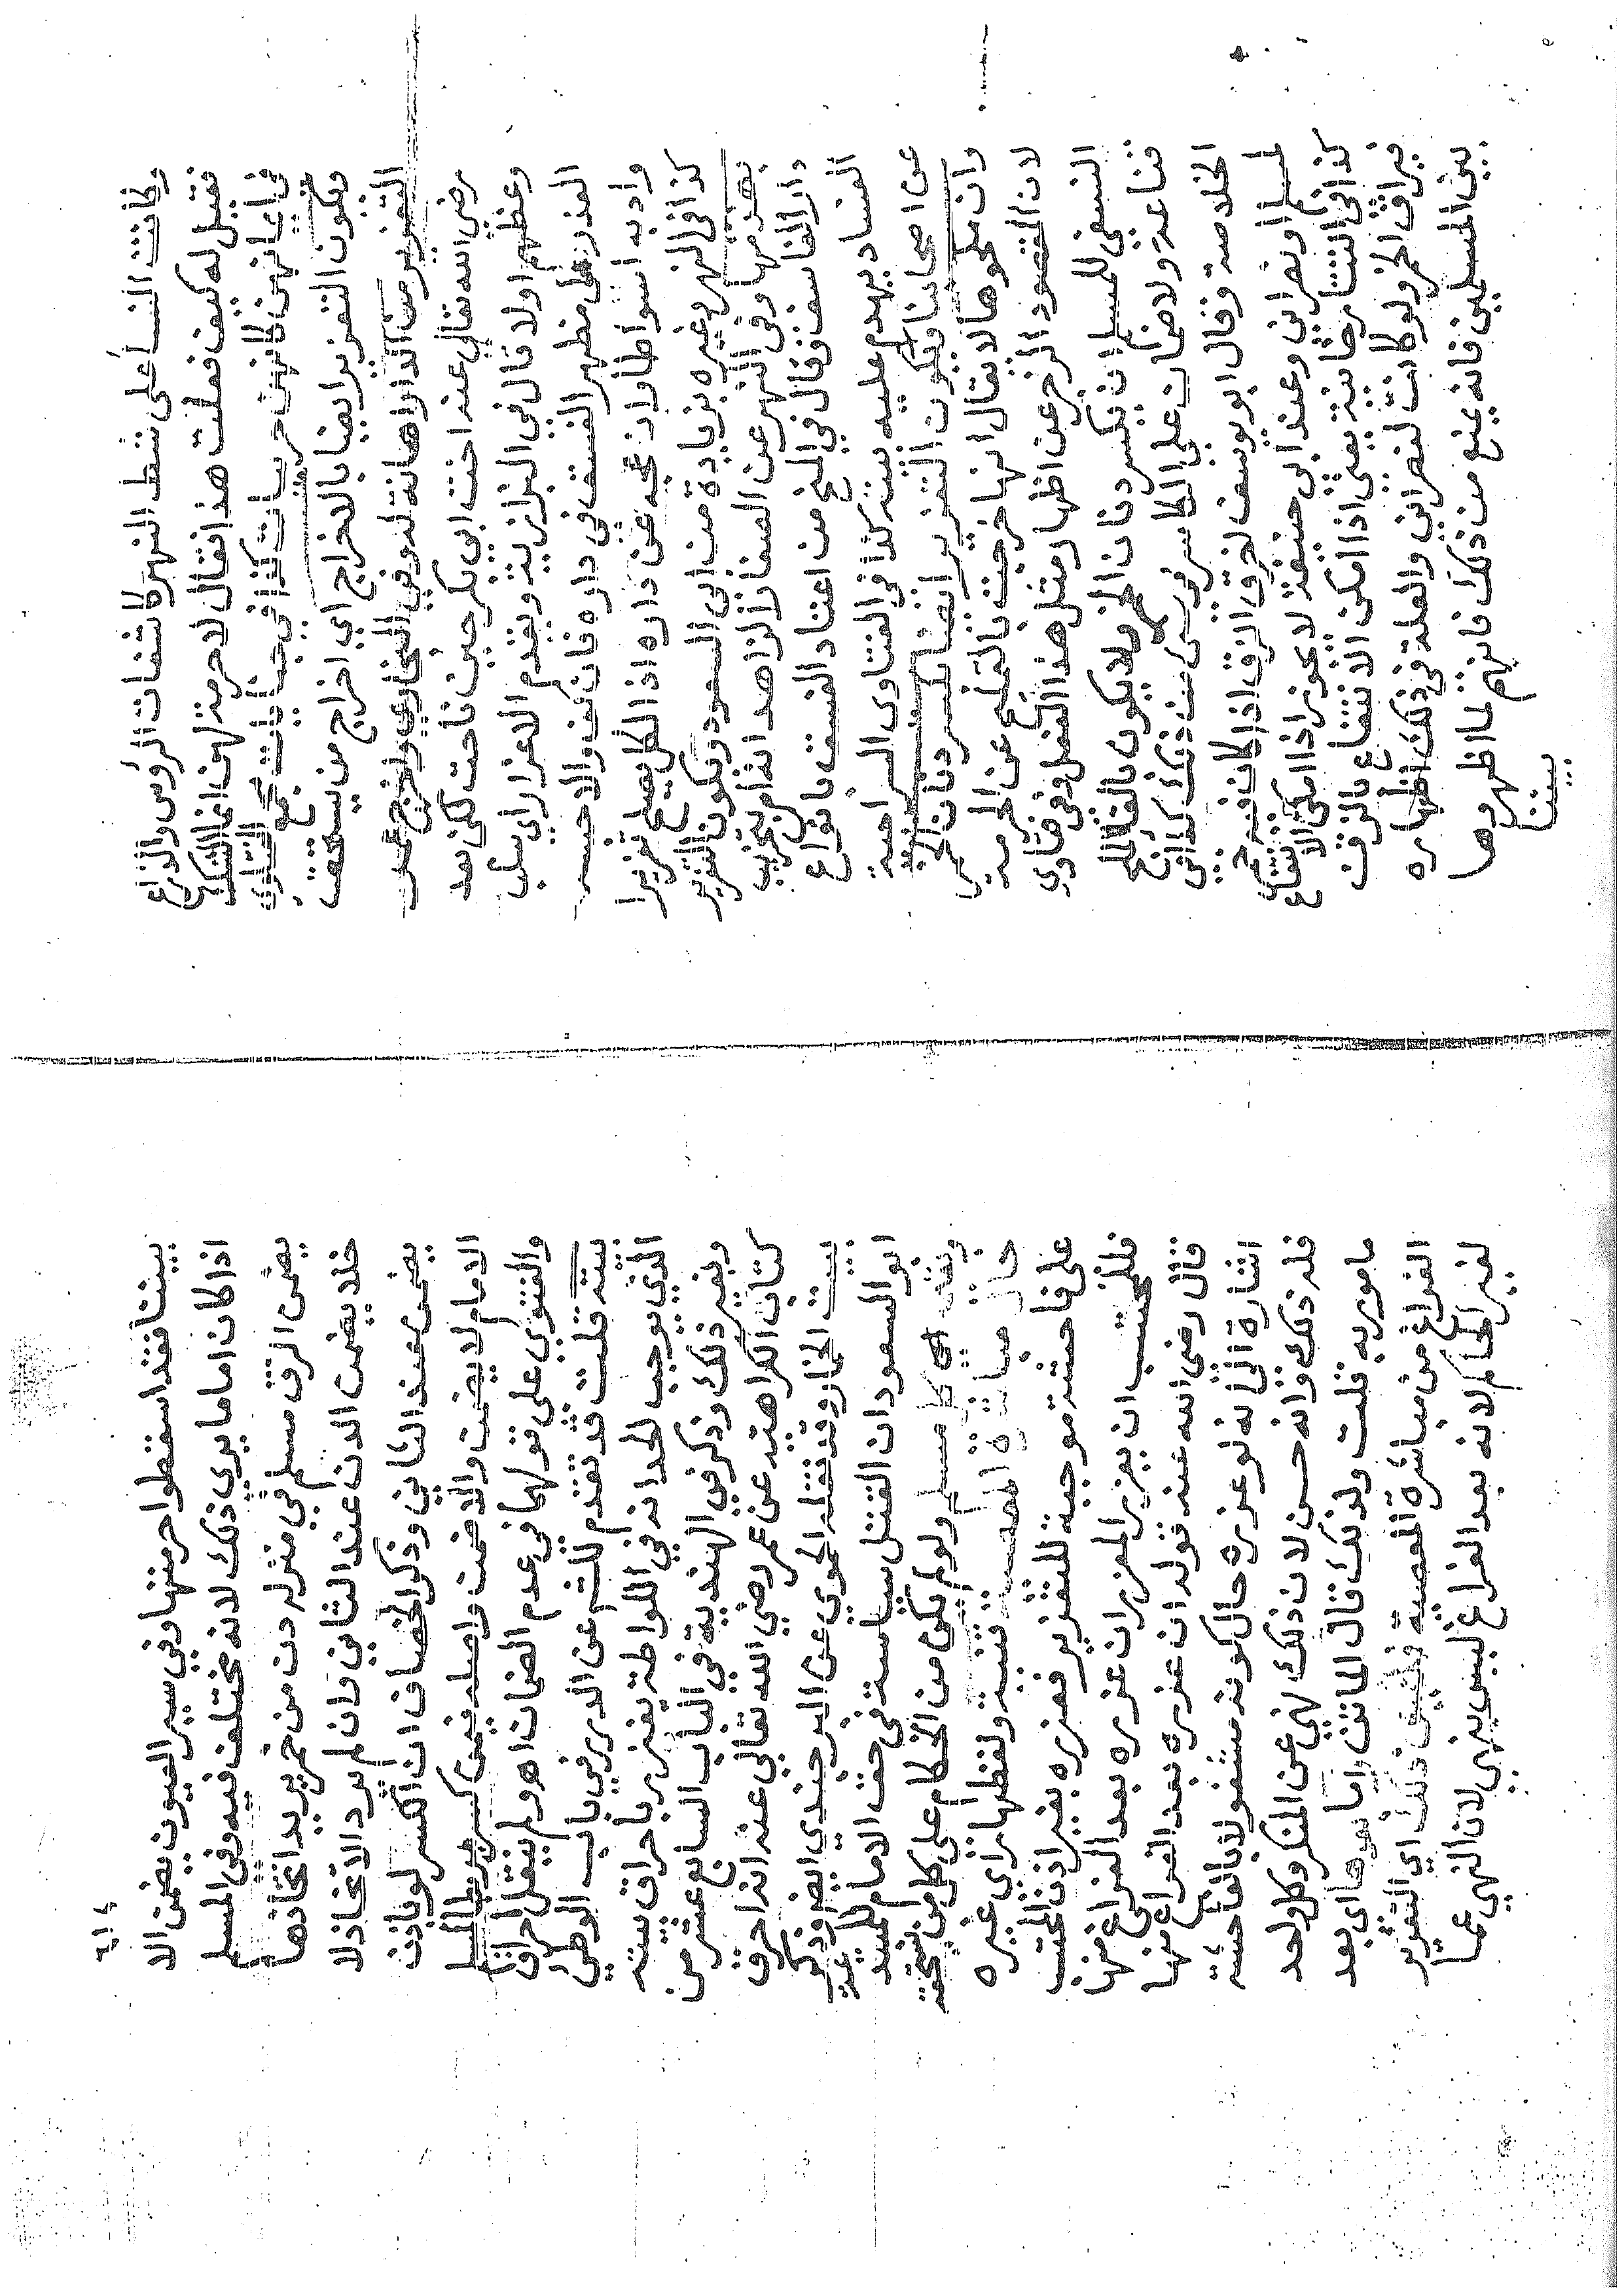 وكانت النساء على شط النهر كاشفات الرؤس والذراع
فقيل له كيف فعلت هذا فقال لا حرمة لهن انما الشك
في ايمانهن كانهن حربيات كذا في جنايات مجمع الفتاوى
ويكون التعزير ايضا بالاخراج اي اخراج من يستحق
التعزير من الدار اهانة له وفي البخاري واخرج عمر
رضي الله تعالى عنه اخت ابي بكر حين ناحت لكن بعد
وعظهم اولا قال في البزازية ويقدم الاعذار اي يطلب
العذر على مظهر الفسق في داره فان كف والا حبسه
وادبه اسواطا وازعجه عن داره اذ الكل يصلح تعزيرا
كذا في النهر وغيره بزيادة من ابي السعود ويكون التعزير
بهدمها وفي النهر عن الصفار الزاهد انه امر بتخريب
دار الفاسق وقال في المنح من اعتاد الفسق بانواع
الفساد يهدم عليه بيته كذا في الفتاوى السراجية
عن اصحابنا ويكون التعزير ايضا بكسر دنان الخمر
وان ملحوها لا يقال انها خرجت بالتمليح عن الخمرية
لان المقصود الزجر عن اظهار مثل هذا الفعل وفي فتاوي
النسفي للمسلم ان يكسر دنان الخمر ولا يكون بالقا الملح
قناعة ولا ضمان على الكاسر في شيء من ذلك كذا في
الخلاصة وقال ابو يوسف لخرق الزق اذا كان فيه خمر
لمسلم او نصراني وعند ابي حنيفة لا يجوز اذا امكن الانتفاع
كذا في التتارخانية يعني اذا امكن الانتفاع بالزق
فيراق الخمر ولو كانت لنصراني والعلة في ذلك اظهاره
بين المسلمين فانه يمنع من ذلك فانهم لما اظهروها
بيننا
٢١٤
بيننا فقد اسقطوا حرمتها وفي سير العيون يضمن الا
اذا كان اماما يرى ذلك لانه مختلف فيه وفي المسلم
يضمن الزق مسلم في منزله دن من خمر يريد اتخاذها
خلا يضمن الدن عند الثاني وان لم يرد الاتخاذ لا
يضمن عند الثاني وذكر الخصاف ان الكسر لو باذن
الامام لا يضمن والا ضمن واصله فيمن كسر بربط المسلم
والفتوى على قولهما في عدم الضمان اهـ ولم ينقل احراق
بيته قلت قد تقدم للشم عن الدرر في باب الوطئ
الذي يوجب الحد انه في اللواطة يعزر باحراق بيته
وبغير ذلك وذكر في الهندية في الباب السابع عشر من
كتاب الكراهية عن عمر رضي الله تعالى عنه انه احرق
بيت الخمار وقد نقله الحموي عن البرجندي ايضا وذكر
ابو السعود ان القتل سياسة في حق الامام للمبتدع
ويقيمه اي كل مسلم ولو لم يكن من الحكام على كل من شخصه
حال مباشرة المعصية قنية ولفظها راي غيره
على فاحشة موجبة للتعزير فعزره بغير اذن المحتسب
فللمحتسب ان يعزر المعزر ان عزره بعد الفراغ منها
قال رضي الله عنه قوله ان عزره بعد الفراغ منها
اشارة الى انه لو عزره حال كونه مشغولا بالفاحشة
فله ذلك وانه حسن لان ذلك نهي عن المنكر وكل واحد
مامور به قلت ولذلك قال الماتن واما بعدها اي بعد
الفراغ من مباشرة المعصية فليس ذلك اي التعزير
لغير الحاكم لانه بعد الفراغ ليس بنهي لان النهي عما